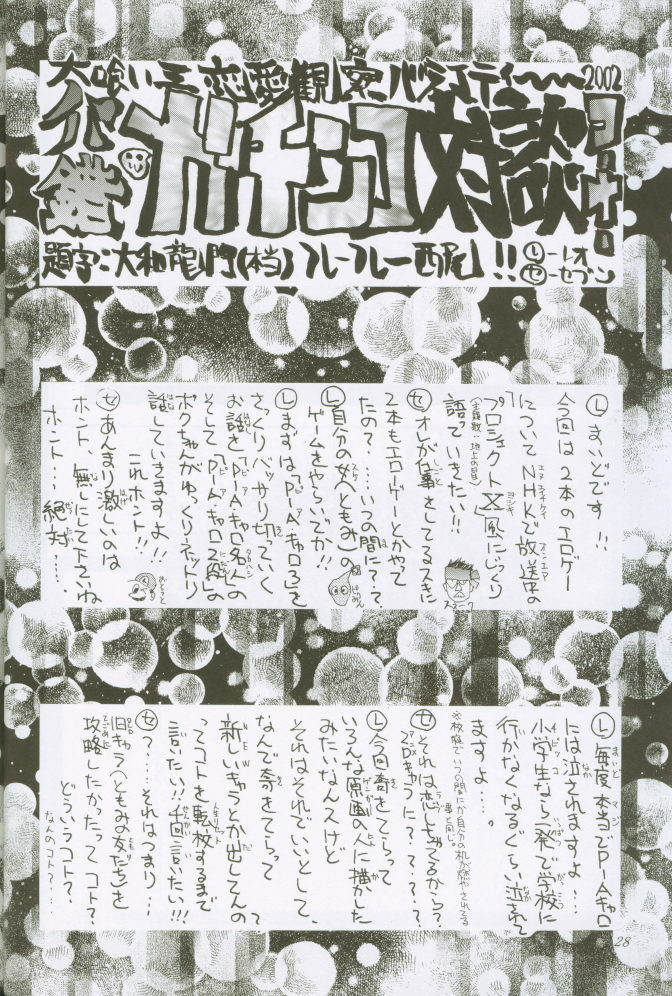 大喰い王恋愛観察バラエティー〜〜2002
ガチンコ対談
コーナー
題字:大和龍門(本当) フレーフレー西尾!! Ⓛーレオ
セーセブン
Ⓛまいどです!!
今回は2本のエロゲー
についてNHKで放送中の
「プロジェクトX」風にじっくり
語っていきたい!!
スネーク
セ オレが仕事をしてるスキに
2本もエロゲーとかやって
たの?...いつの間に??
Ⓛ自分の女(ともみ)の
ゲームをやらいでか!!
Ⓛまずは「Pia・キャロ3」を
さっくりバッサリ切っていく
お話を「Pia・キャロ名人」の
そして「Pia・キャロ2」殿の
ボクちゃんがゆっくりネットリ
話していきますよ!!
これホント!!
おとうと
セ あんまり激しいのは
ホント、無しにして下さいね
ホント...絶対...
Ⓛ毎度本当でPiaキャロ
には泣されますよ...
小学生なら一発で学校に
行かなくなるぐらい泣されて
ますよ...。
セ それは恋しちゃってるから?
アンロきゅうに????
Ⓛ今回奇をてらって
いろんな原画の人に描かした
みたいなんスけど
それはそれでいいとして、
なんで奇をてらって
新しいきゅうとか出してんの?
ってコトを転校するまで
言いたい!!千回言いたい!!!
セ ?...それはつまり...
旧きゅう(ともみの友だち)を
攻略したかったってコト?
どういうコト?
なんのコト?...
28